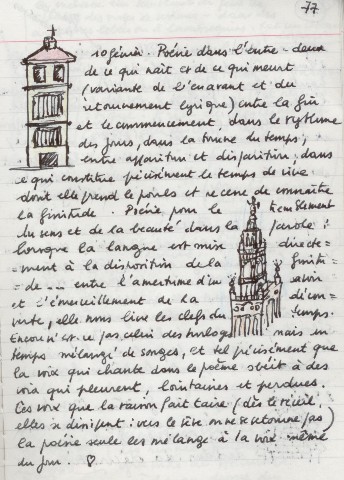 77
10 février. Poésie dans l'entre-deux
de ce qui naît et de ce qui meurt
(variante de l'en avant et du
retournement lyrique) entre la fin
et le commencement, dans le rythme
des jours, dans la tourne du temps;
entre apparition et disparition, dans
ce qui constitue précisément le temps de vivre
dont elle prend le pouls et ne cesse de connaître
la finitude. Poésie pour le tremblement
du sens et de la beauté dans la parole:
lorsque la langue est mise directe-
-ment à la disposition de la finitu-
-de ... entre l'amertume d'un savoir
et l'émerveillement de la décou-
verte, elle nous livre les clefs du temps.
Encore n'est-ce pas celui des horloges mais un
temps mélangé de songes, et tel précisément que
la voix qui chante dans le poème obéit à des
voix qui pleurent, lointaines et perdues.
Ces voix que la raison fait taire (dès le réveil,
elles se dissipent: vers le rêve on ne se retourne pas)
la poésie seule les mélange à la voix même
du jour.